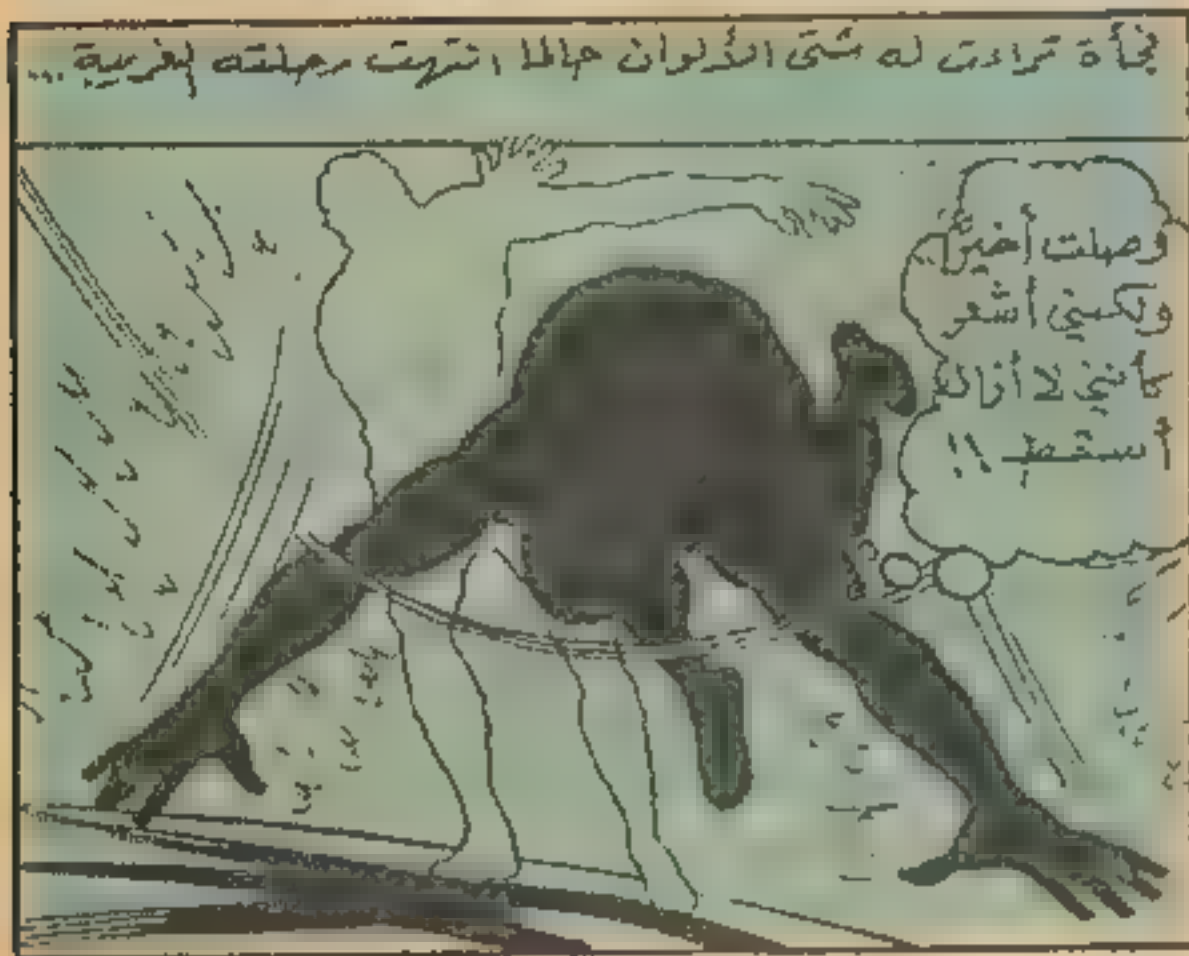 فجأة تراءت له شتى الألوان حالما انتهت رحلته الغريبة ...
وصلت أخيرًا..
ولكنني أشعر
كأنني لا أزال
أسقط !!